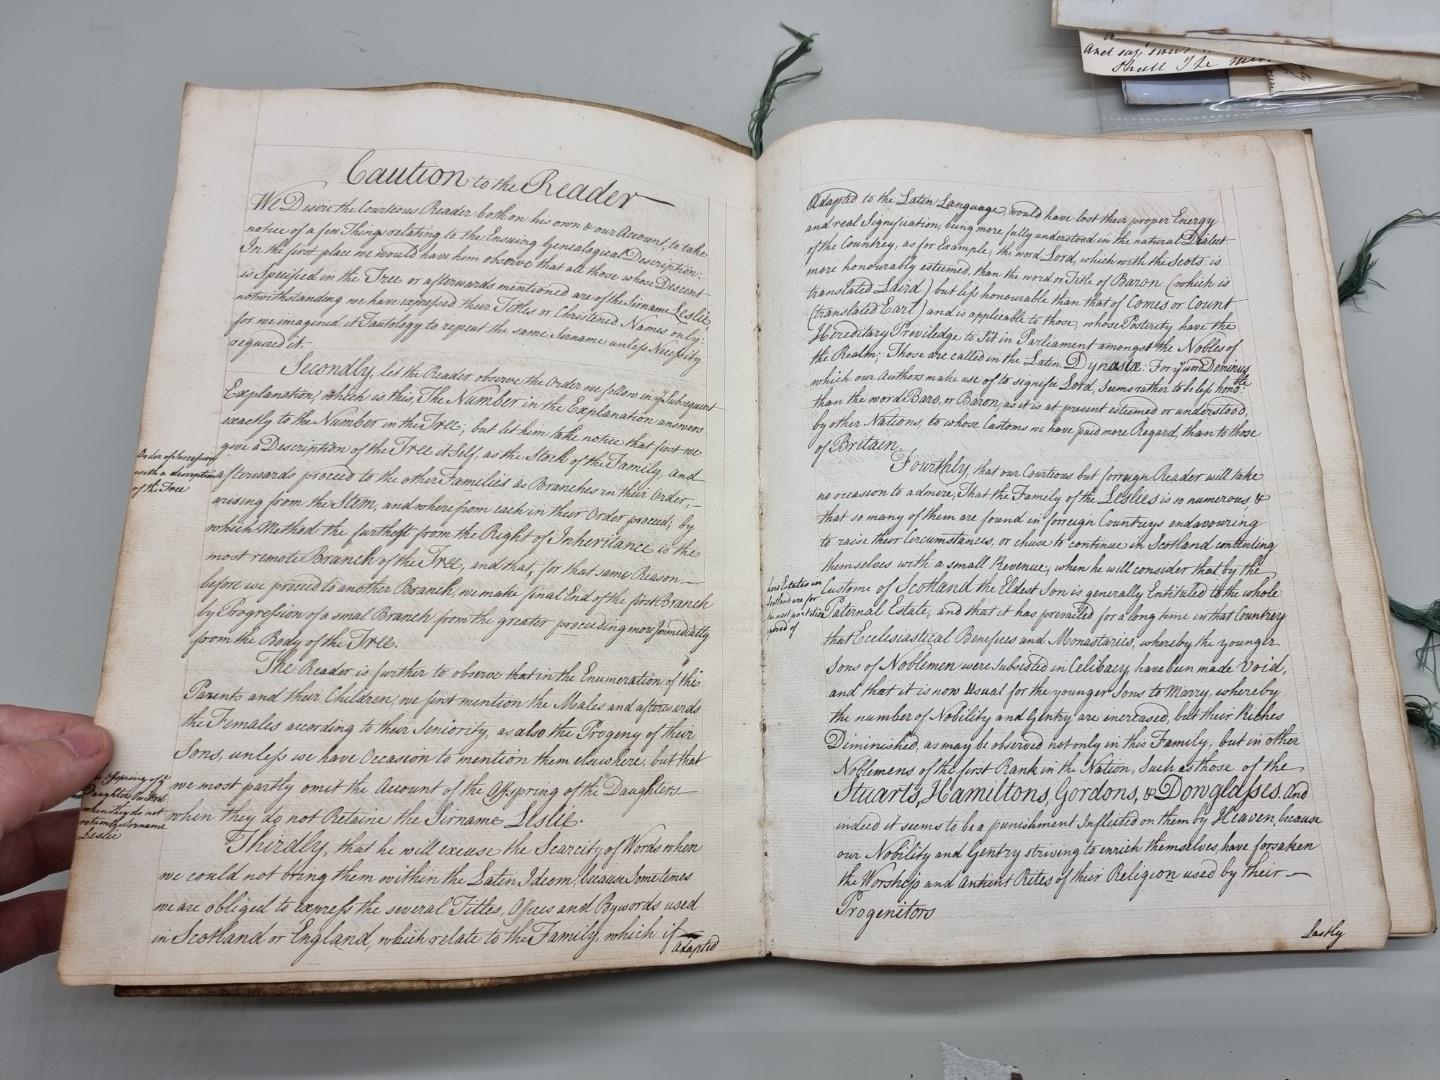 Caution to the Reader
We Desire the Courteous Reader both on his own & our Account, to take
notice of a few Things relating to the Ensuing Genealogical Description:
In the first place we would have him observe that all those whose Descent
is Specified in the Tree or afterwards mentioned are of the Sirname Leslie,
notwithstanding we have expressed their Titles or Christened Names only:
for we imagined it Tautology to repeat the same Sirname unless Necessity
required it.
Secondly, let the Reader observe the Order we follow in ye Subsequent
Explanation, which is this, The Number in the Explanation answers
exactly to the Number in the Tree; but let him take notice that first we
give a Description of the Tree it Self, as the Stock of the Family, and
Order of Succession
with a description
of the Tree
afterwards proceed to the other Families as Branches in their Order,
arising from the Stem, and where from each in their Order proceed; by
which Method the furthest from the Right of Inheritance is the
most remote Branch of the Tree, and that, for that same Reason
before we proceed to another Branch, we make final End of the first Branch
by Progression of a smal Branch from the greater proceeding more Immediatly
from the Body of the Tree.
The Reader is further to observe that in the Enumeration of the
Parents and their Children, we first mention the Males and afterwards
the Females according to their Seniority, as also the Progeny of their
Sons, unless we have Occasion to mention them elsewhere, but that
we most partly omit the Account of the Offspring of the Daughters
when they do not Retaine the Sirname Leslie.
Offspring of ye
Daughters
when they do not
retain the Sirname
Leslie
Thirdly, that he will excuse the Scarcity of Words when
we could not bring them within the Latin Ideom, because Sometimes
we are obliged to express the several Titles, Offices and Bywords used
in Scotland or England, which relate to the Family, which if
adapted
Adapted to the Latin Language, would have lost their proper Energy
and real Signification, being more fully understood in the natural Dialect
of the Countrey, as for Example, the word Lord, which with the Scots is
more honourably esteemed, than the word or Title of Baron (which is
translated Laird) but less honourable than that of Comes or Count
(translated Earl) and is applicable to those, whose Posterity have the
Hereditary Priviledge to Sit in Parliament amongst the Nobles of
the Realm; Those are called in the Latin Dynastæ: For ye word Dominus
which our Authors make use of to signifie Lord, seems rather to be less honoble
than the word Baro, or Baron, as it is at present esteemed or understood,
by other Nations, to whose Customs we have paid more Regard, than to those
of Britain.
Fourthly, that our Courteous but forreign Reader will take
no occasion to admire, That the Family of the Leslies is so numerous, &
that so many of them are found in forreign Countreys endavouring
to raise their Circumstances, or chuse to continue in Scotland contenting
themselves with a small Revenue, when he will consider that by the
Custome of Scotland the Eldest Son is generally Entituled to the whole
Paternal Estate, and that it has prevailed for a long time in that Countrey
how Estates in
Scotland are for
the most part disposed of
that Ecclesiastical Benefices and Monastaries, whereby the younger
Sons of Noblemen were subsisted in Celibacy, have been made Void,
and that it is now Usual for the younger Sons to Marry, whereby
the number of Nobility and Gentry are increased, but their Riches
Diminished, as may be observed not only in this Family, but in other
Noblemens of the first Rank in the Nation, Such as those of the
Stuarts, Hamiltons, Gordons, & Dowglasses. And
indeed it seems to be a punishment Inflicted on them by Heaven, because
our Nobility and Gentry striving to enrich themselves, have forsaken
the Worship and Antient Rites of their Religion used by their
Progenitors
Lastly
And say,
Shall I he